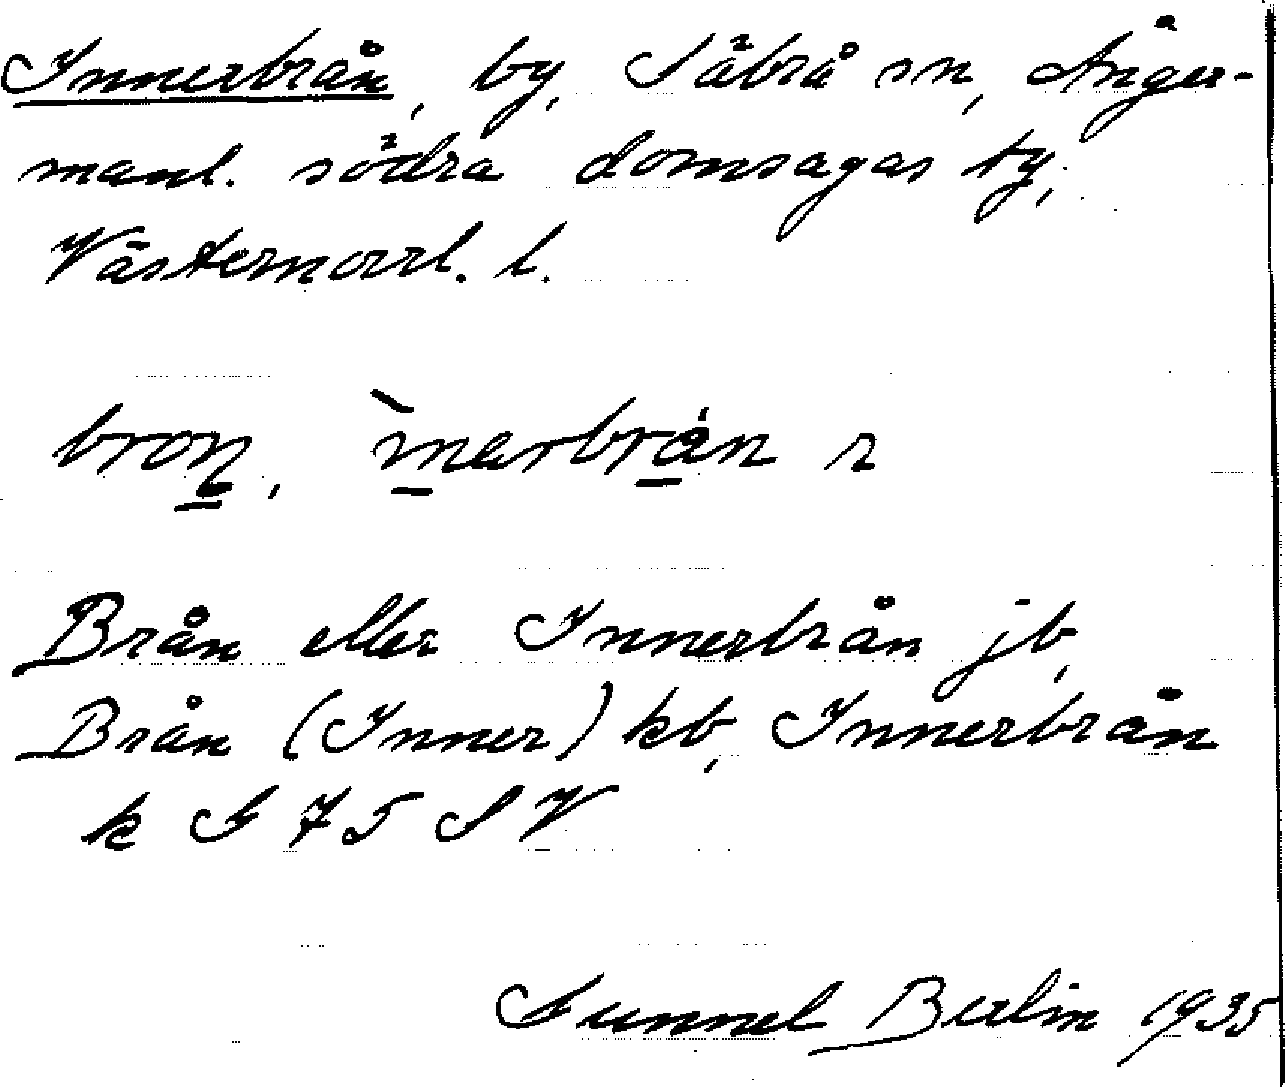 Innerbrån, by, Säbrå sn, Ånger-
manl. södra domsagas tg,
Västernorrl. l.
bron, ìnərbrån
Brån eller Innerbrån jb,
Brån (Inner) kb, Innerbrån
k G 75 S V
Gunnel Berlin 1935